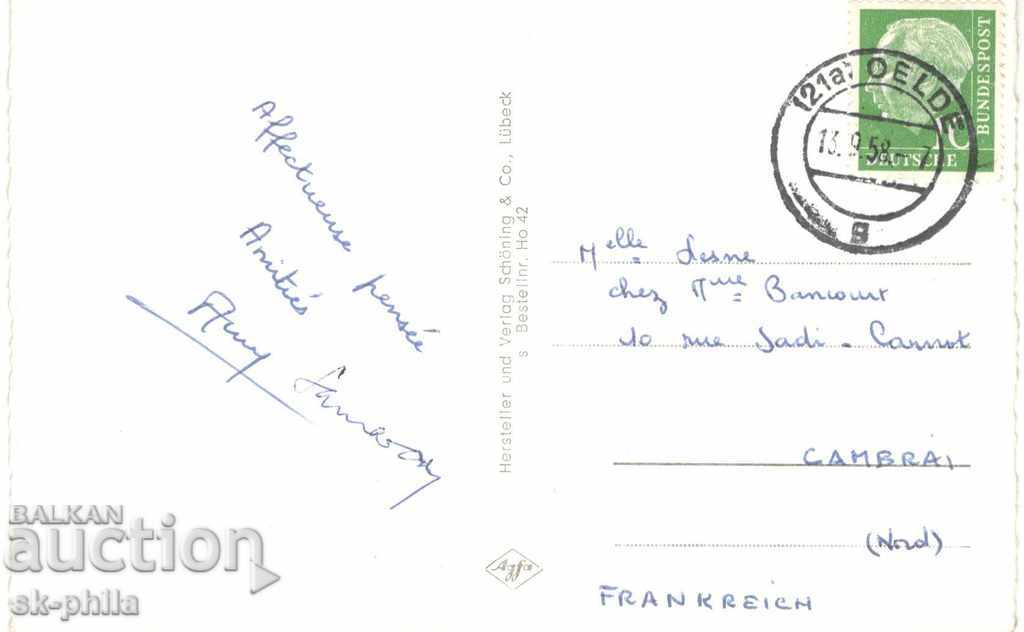 Affectueuse pensée
Amitiés
Hersteller und Verlag Schöning & Co., Lübeck
s Bestellnr. Ho 42
Agfa
(21a) OELDE
13.9.58.- 7
g
DEUTSCHE
BUNDESPOST
Melle Lesne
chez Mme Bancourt
10 rue Sadi - Carnot
CAMBRAI
(Nord)
FRANKREICH
BALKAN
auction
sk-phila